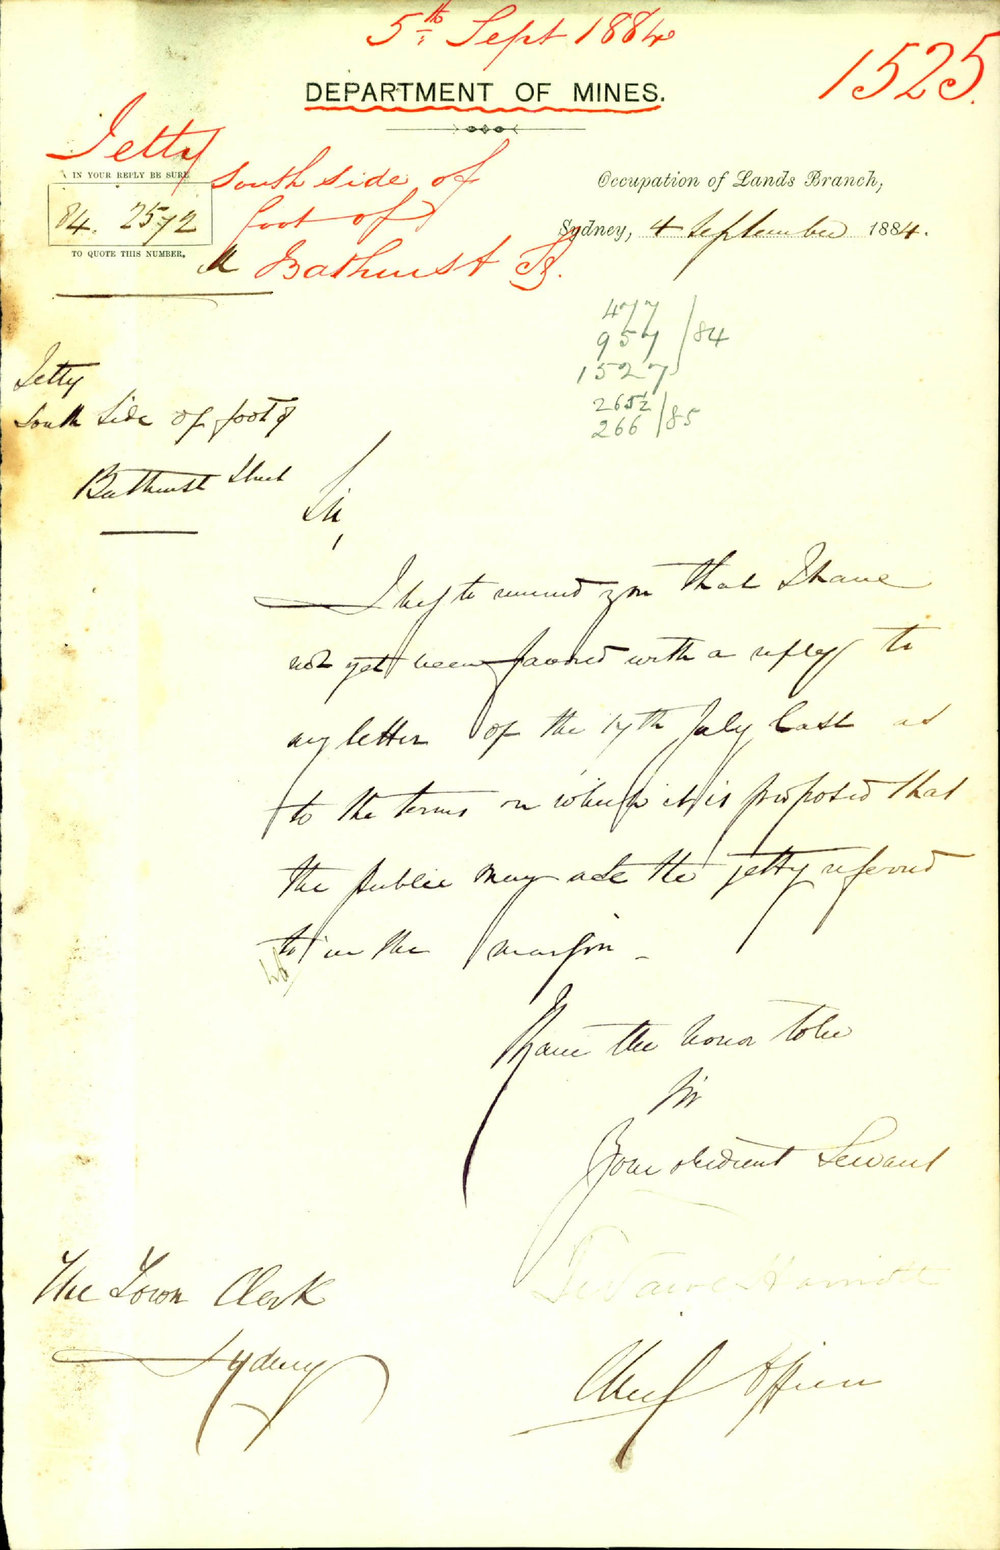 5th Sept 1884
1525.
DEPARTMENT OF MINES.
Jetty
IN YOUR REPLY BE SURE
84. 2572
TO QUOTE THIS NUMBER.
South side of
foot of
Bathurst St.
Occupation of Lands Branch,
Sydney, 4 September 1884.
477
957 /84
1527
2652
266 /85
Jetty
South Side of foot of
Bathurst Street
Sir,
I beg to remind you that I have
not yet been favored with a reply to
my letter of the 17th July last as
to the terms on which it is proposed that
the public may use the jetty referred
to in the margin -
I have the honor to be
Sir
Your obedient Servant
Chief Officer
The Town Clerk
Sydney